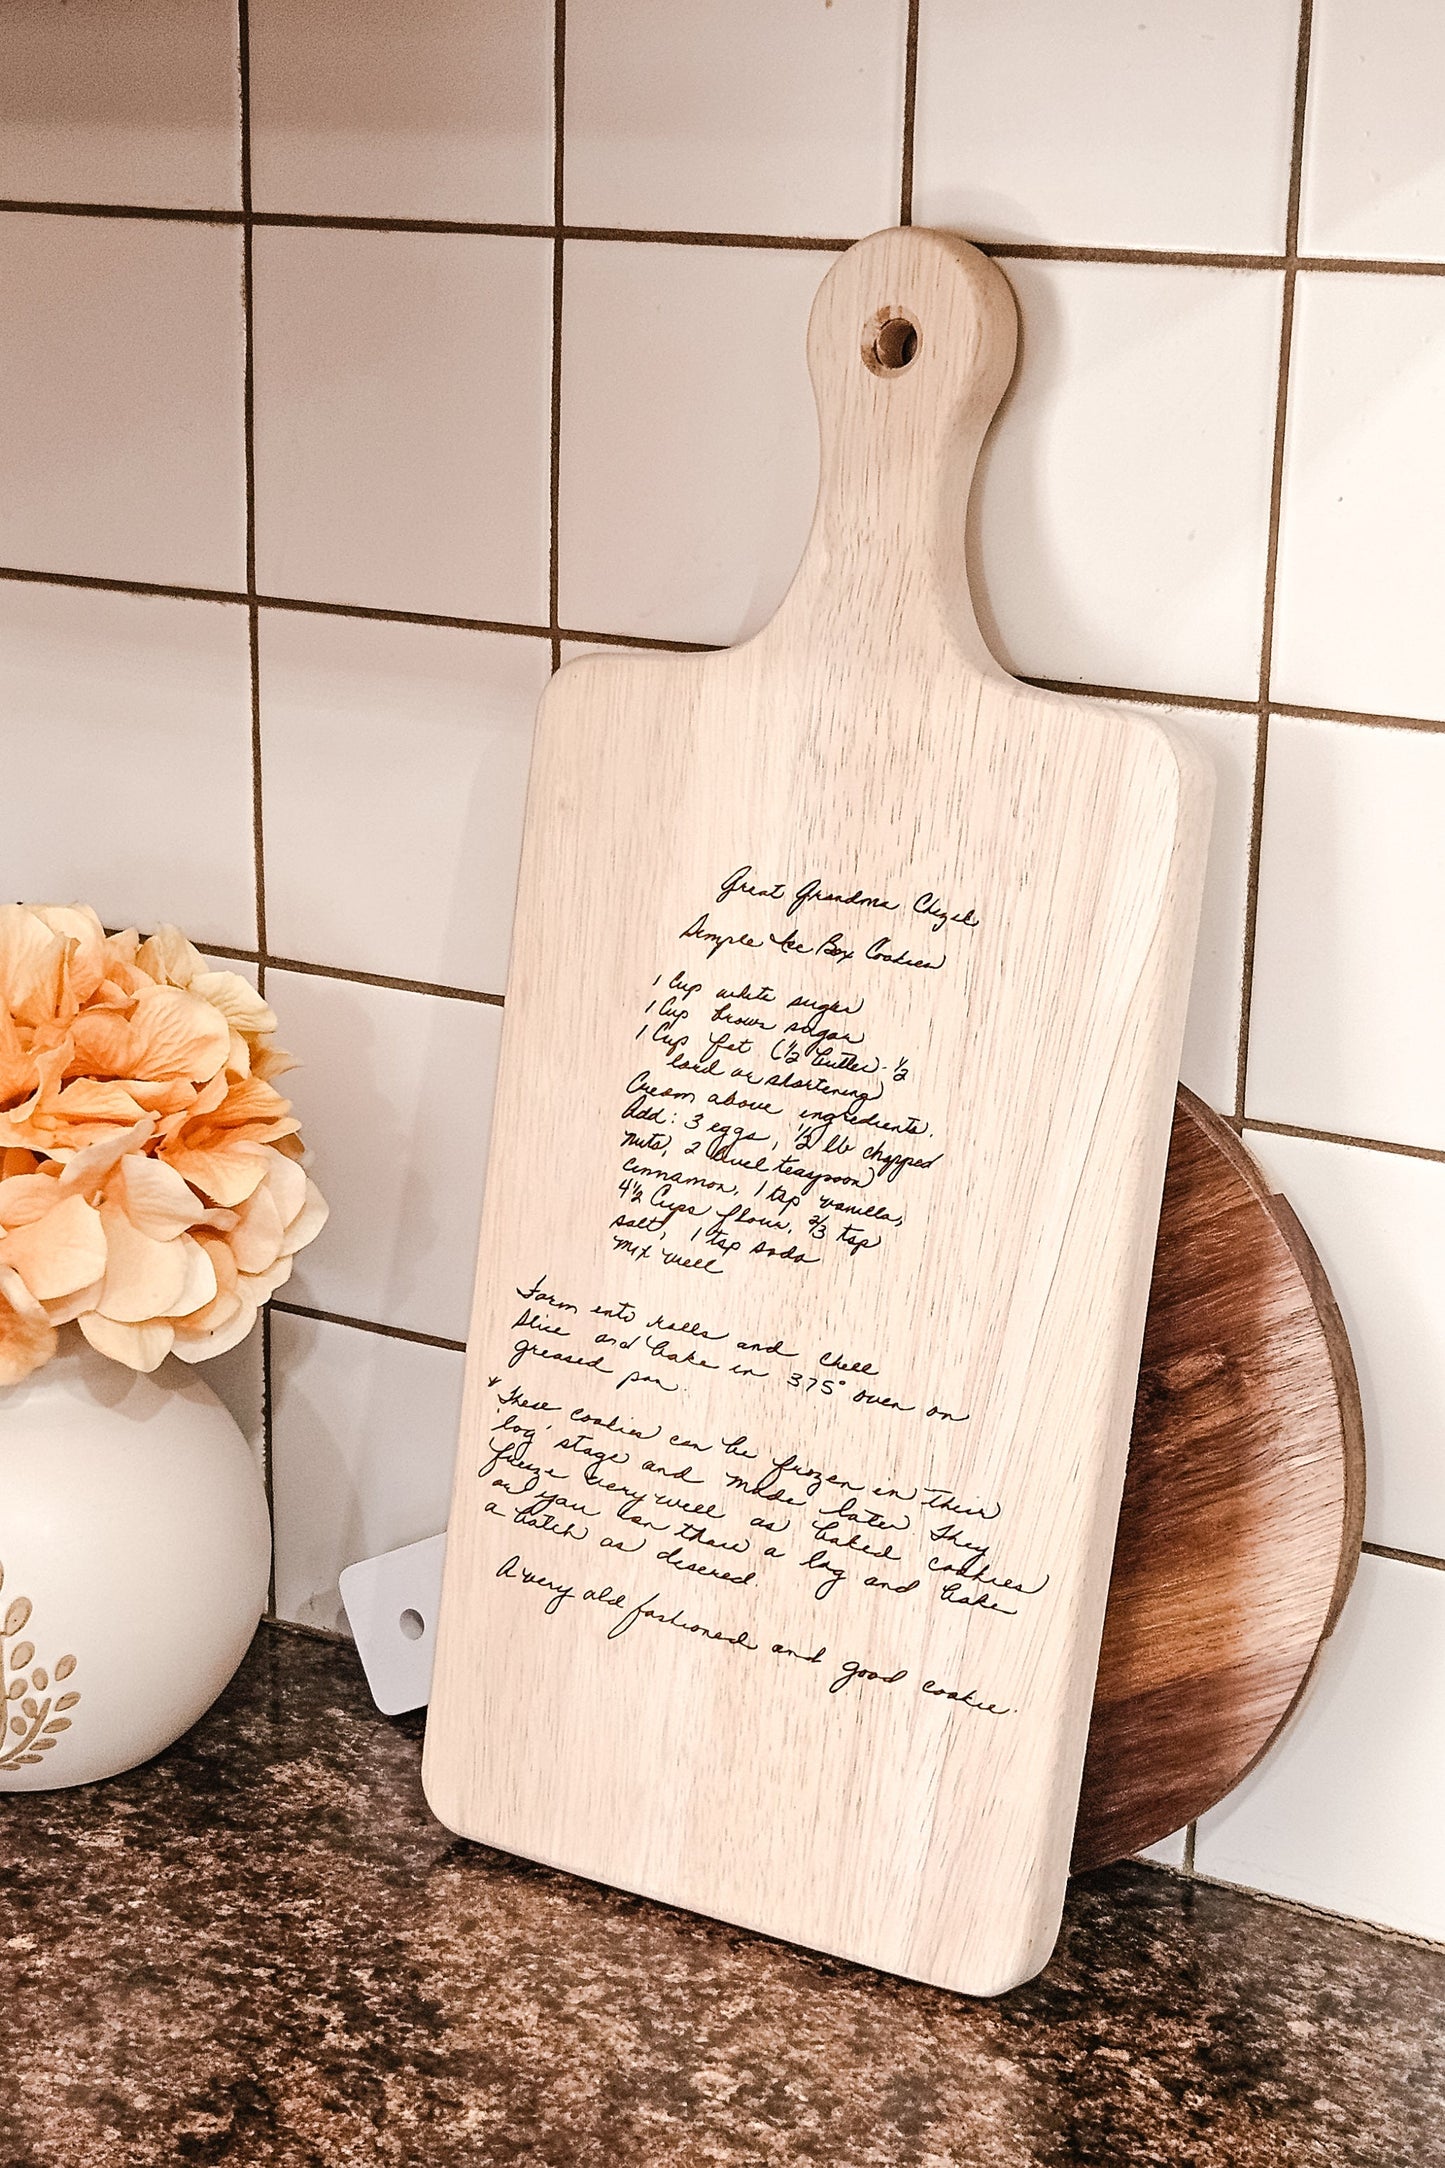 Great Grandma Chizek
Simple Ice Box Cookies
1 Cup white sugar
1 Cup brown sugar
1 Cup fat (½ butter) - ½
lard or shortening)
Cream above ingredients.
Add: 3 eggs, ½ lb chopped
nuts, 2 level teaspoon
cinnamon, 1 tsp vanilla,
4½ Cups flour, ⅔ tsp
salt, 1 tsp soda
mix well
Form into rolls and chill
Slice and bake in 375° oven on
greased pan.
* These cookies can be frozen in their
'log' stage and made later. They
freeze very well as baked cookies
or you can thaw a log and bake
a batch as desired.
A very old fashioned and good cookie.